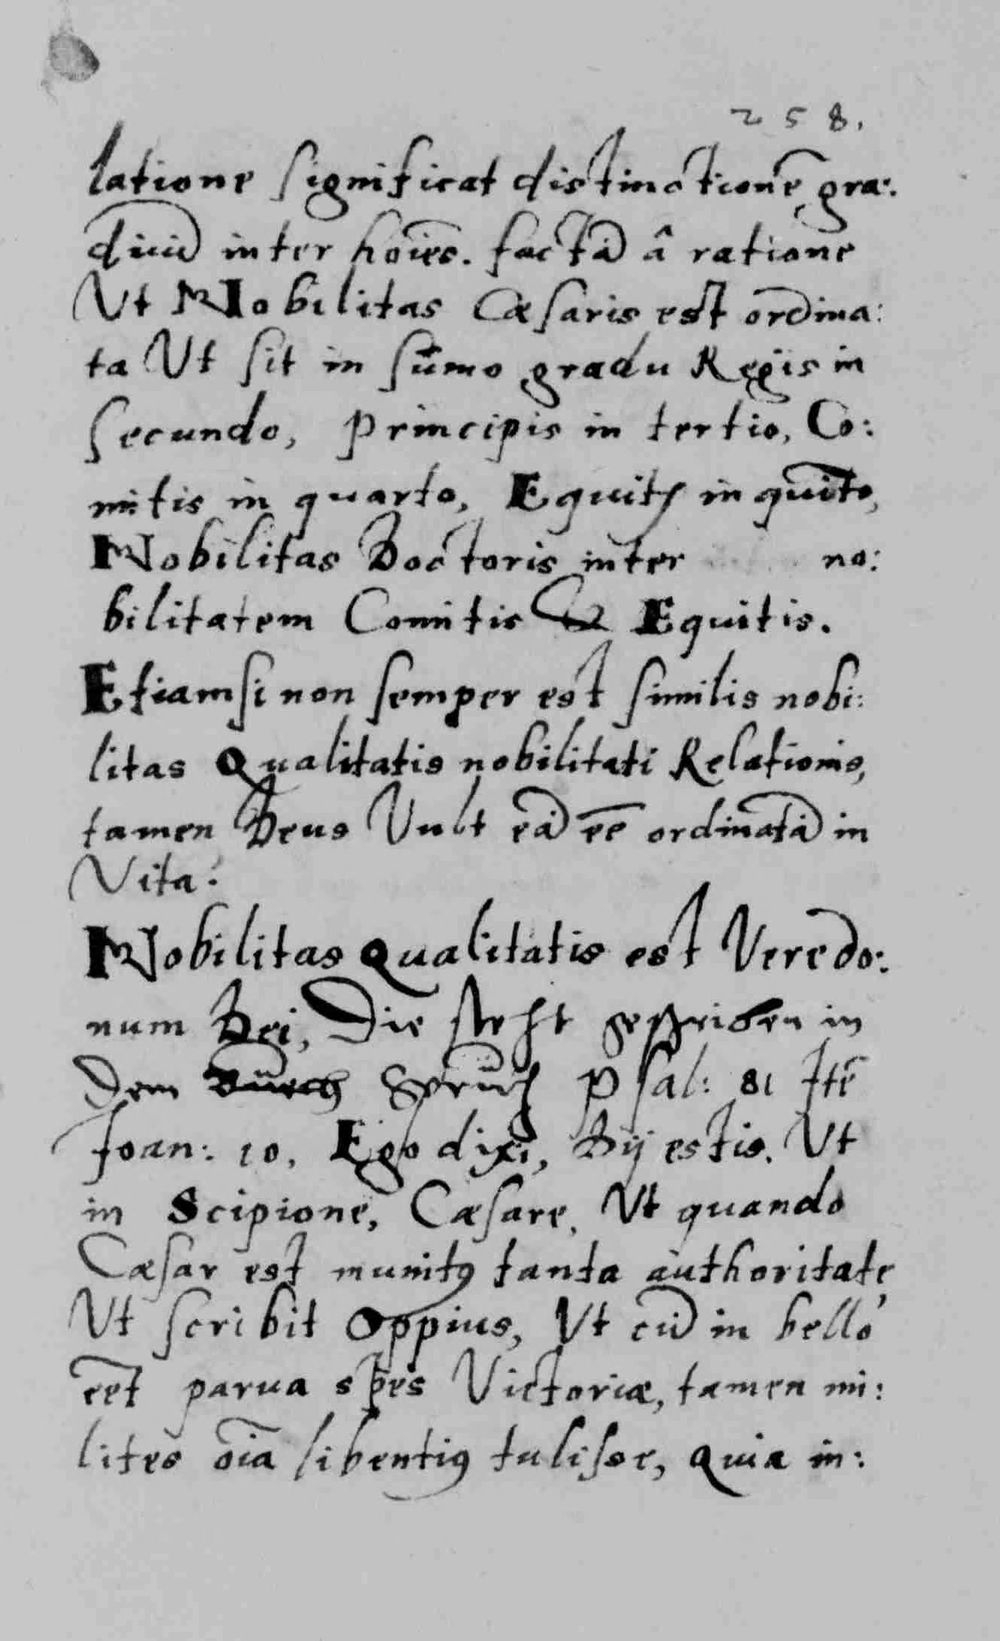 258.
latione significat distinctionē gra:
duū inter hoīes. factā â ratione
Ut Nobilitas Cæsaris est ordina:
ta Ut sit in sūmo gradu Regis in
secundo, principis in tertio, Co:
mitis in quarto, Equitis in quīto,
Nobilitas Doctoris inter no:
bilitatem Comitis & Equitis.
Etiamsi non semper est similis nobi:
litas Qualitatis nobilitati Relationis,
tamen Deus Vult eā eē ordinatā in
Vita:
Nobilitas Qualitatis est Vere do:
num Dei, Die steht geschriben in
dem Buech Spruch Psal: 81 Itē
Joan: 10. Ego dixi, Dij estis. Ut
in Scipione, Cæsare, Ut quando
Cæsar est munitꝯ tanta authoritate
Ut scribit Oppius, Ut cū in bello
eēt parua spes Victoriæ, tamen mi:
lites oīa libentiꝯ tulisse, quia in: